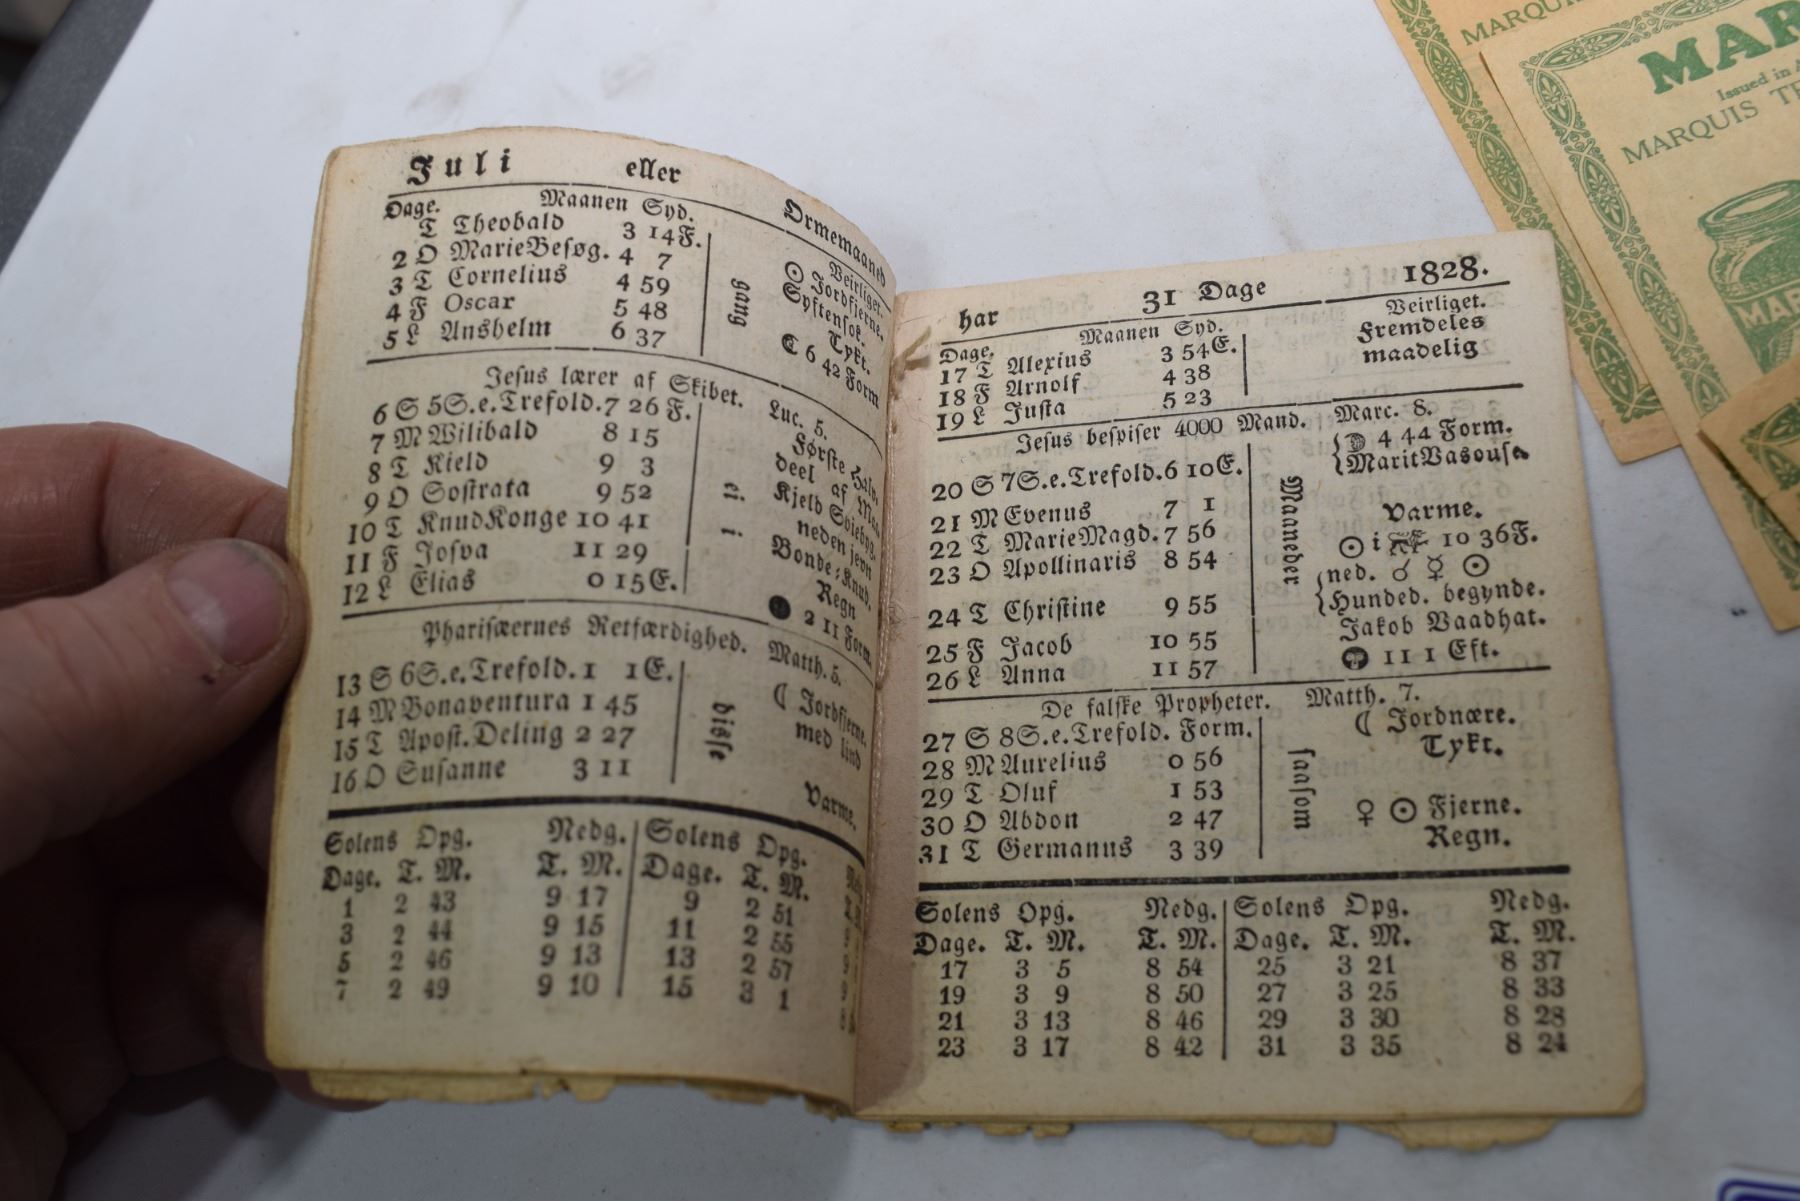 Juli eller Ormemaaned
Dage. Maanen Syd. Veirliget.
T Theobald 3 14F. ☉ Jordfjerne.
2 O MarieBesøg. 4 7 Syvfensok.
3 T Cornelius 4 59 Tykt.
4 F Oscar 5 48
5 L Anshelm 6 37 ☾ 6 42 Form
gang
Jesus lærer af Skibet. Luc. 5.
6 S 5S.e.Trefold. 7 26 F. Første Halv-
7 M Wilibald 8 15 deel af Maa-
8 T Kield 9 3 Kjeld
9 O Sostrata 9 52 neden jevn
10 T KnudKonge 10 41 Bonde-Knud.
11 F Josva 11 29 Regn
12 L Elias 0 15E. 2 11 Form.
ei i
Pharisæernes Retfærdighed. Matth. 5.
13 S 6S.e.Trefold. 1 1E. ☾ Jordfjerne.
14 M Bonaventura 1 45 med lind
15 T Apost.Deling 2 27
16 O Susanne 3 11 Varme.
disse
Solens Opg. Nedg. Solens Opg.
Dage. T. M. T. M. Dage. T. M.
1 2 43 9 17 9 2 51
3 2 44 9 15 11 2 55
5 2 46 9 13 13 2 57
7 2 49 9 10 15 3 1
har 31 Dage 1828.
Dage. Maanen Syd. Veirliget.
17 T Alexius 3 54E. Fremdeles
18 F Arnolf 4 38 maadelig
19 L Justa 5 23
Jesus bespiser 4000 Mand. Marc. 8.
20 S 7S.e.Trefold. 6 10E. 4 44 Form.
MaritVasouse.
21 M Evenus 7 1
22 T MarieMagd. 7 56 Varme.
23 O Apollinaris 8 54 ☉ i 10 36F.
ned. ☌ ☿ ☉
24 T Christine 9 55 Hunded. begynde.
25 F Jacob 10 55 Jakob Vaadhat.
26 L Anna 11 57 11 1 Eft.
Maaneder
De falske Propheter. Matth. 7.
27 S 8S.e.Trefold. Form. ☾ Jordnære.
28 M Aurelius 0 56 Tykt.
29 T Oluf 1 53
30 O Abdon 2 47 ♀ ☉ Fjerne.
31 T Germanus 3 39 Regn.
saasom
Solens Opg. Nedg. Solens Opg. Nedg.
Dage. T. M. T. M. Dage. T. M. T. M.
17 3 5 8 54 25 3 21 8 37
19 3 9 8 50 27 3 25 8 33
21 3 13 8 46 29 3 30 8 28
23 3 17 8 42 31 3 35 8 24
MARQUI
MAR
Issued in
MARQUIS
MAR